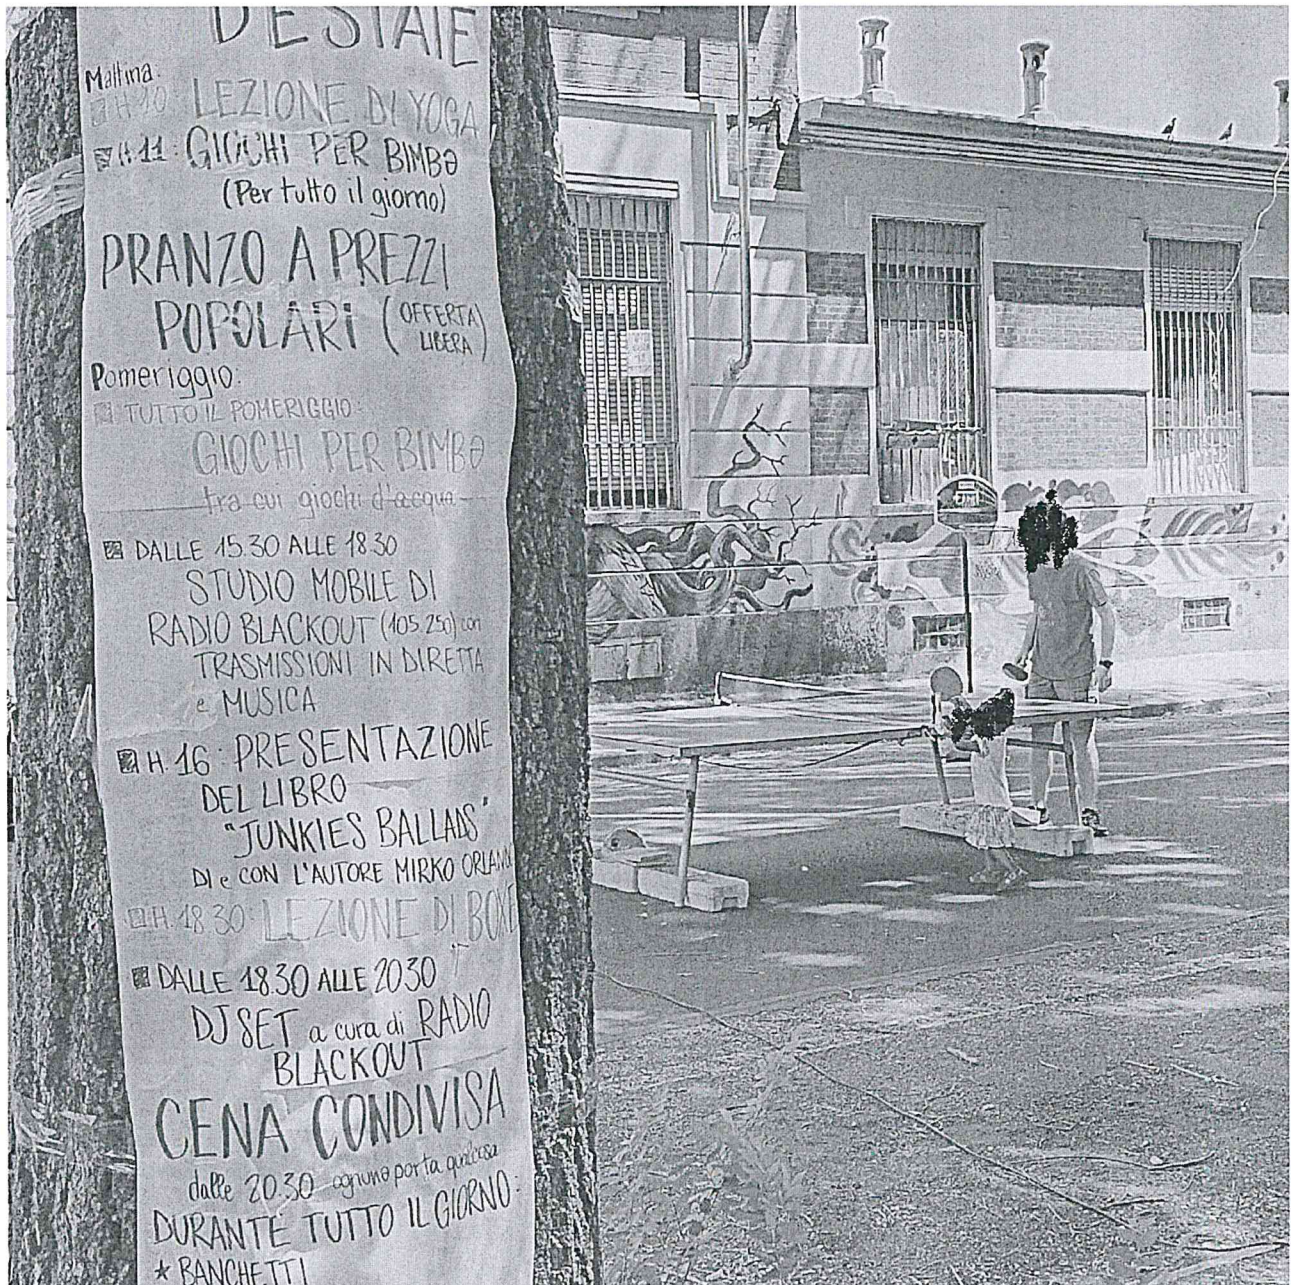 D'ESTATE
Mattina:
H 10 LEZIONE DI YOGA
H 11: GIOCHI PER BIMBƏ
(Per tutto il giorno)
PRANZO A PREZZI
POPOLARI (OFFERTA
LIBERA)
Pomeriggio:
TUTTO IL POMERIGGIO:
GIOCHI PER BIMBƏ
tra cui giochi d'acqua
DALLE 15.30 ALLE 18.30
STUDIO MOBILE DI
RADIO BLACKOUT (105.250) con
TRASMISSIONI IN DIRETTA
e MUSICA
H. 16: PRESENTAZIONE
DEL LIBRO
"JUNKIES BALLADS"
DI e CON L'AUTORE MIRKO ORLAN
H. 18 30: LEZIONE DI BOXE
DALLE 18.30 ALLE 20.30
DJ SET a cura di RADIO
BLACKOUT
CENA CONDIVISA
dalle 20.30 ognuno porta qualcosa
DURANTE TUTTO IL GIORNO:
* BANCHETTI